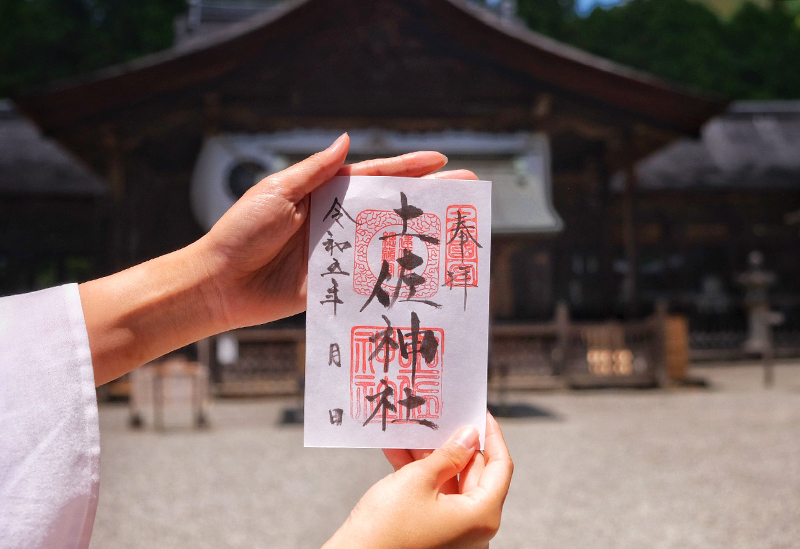 奉拝
土佐神社
令和五年 月 日